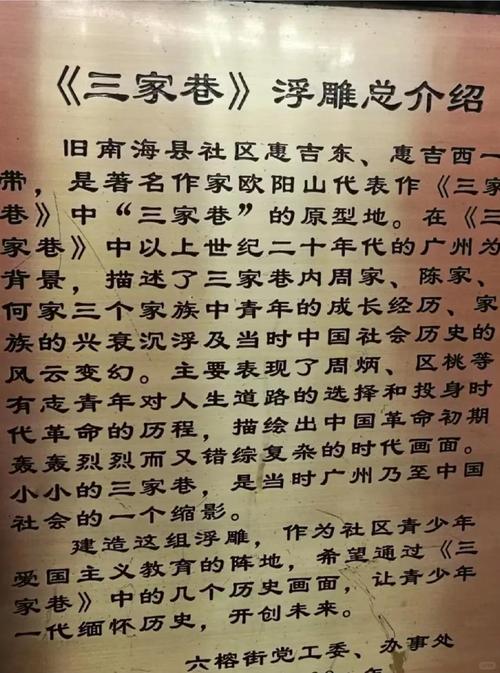 《三家巷》浮雕总介绍
旧南海县社区惠吉东、惠吉西一
带，是著名作家欧阳山代表作《三家
巷》中“三家巷”的原型地。在《三
家巷》中以上世纪二十年代的广州为
背景，描述了三家巷内周家、陈家、
何家三个家族中青年的成长经历、家
族的兴衰沉浮及当时中国社会历史的
风云变幻。主要表现了周炳、区桃等
有志青年对人生道路的选择和投身时
代革命的历程，描绘出中国革命初期
轰轰烈烈而又错综复杂的时代画面。
小小的三家巷，是当时广州乃至中国
社会的一个缩影。
建造这组浮雕，作为社区青少年
爱国主义教育的阵地，希望通过《三
家巷》中的几个历史画面，让青少年
一代缅怀历史，开创未来。
六榕街党工委、办事处